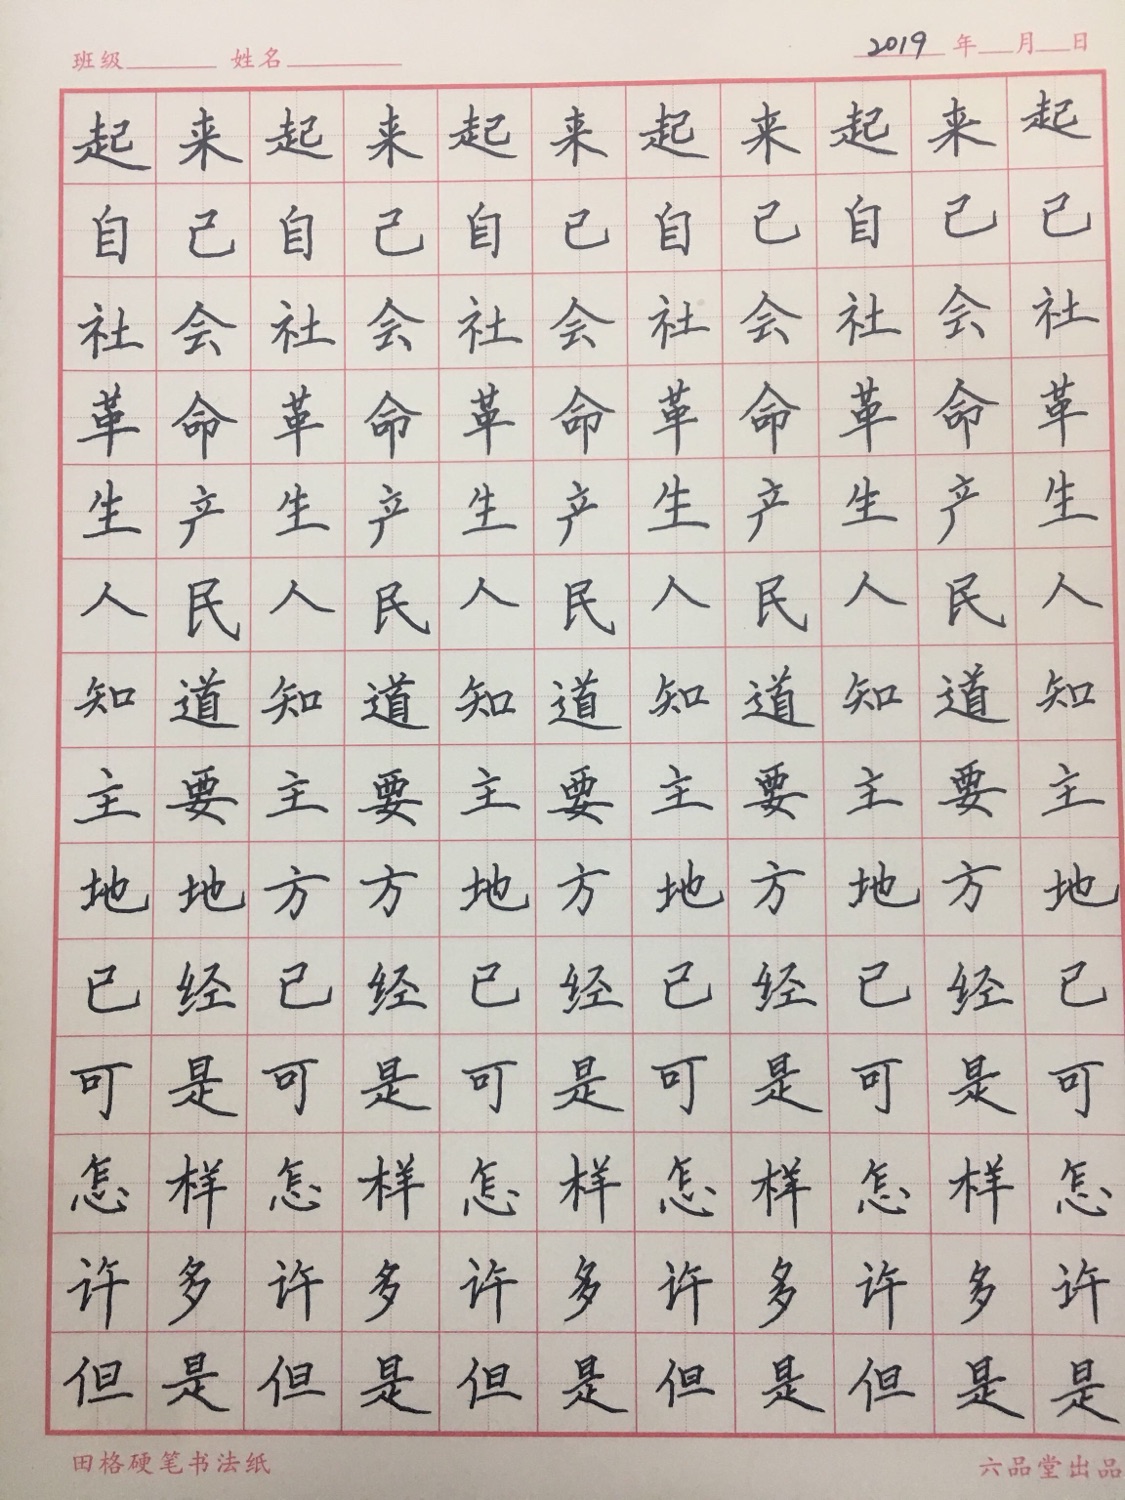 班级 姓名 2019 年 月 日
起来起来起来起来起来起
自己自己自己自己自己己
社会社会社会社会社会社
革命革命革命革命革命革
生产生产生产生产生产生
人民人民人民人民人民人
知道知道知道知道知道知
主要主要主要主要主要主
地地方方地方地方地方地
已经已经已经已经已经已
可是可是可是可是可是可
怎样怎样怎样怎样怎样怎
许多许多许多许多许多许
但是但是但是但是但是是
田格硬笔书法纸 六品堂出品